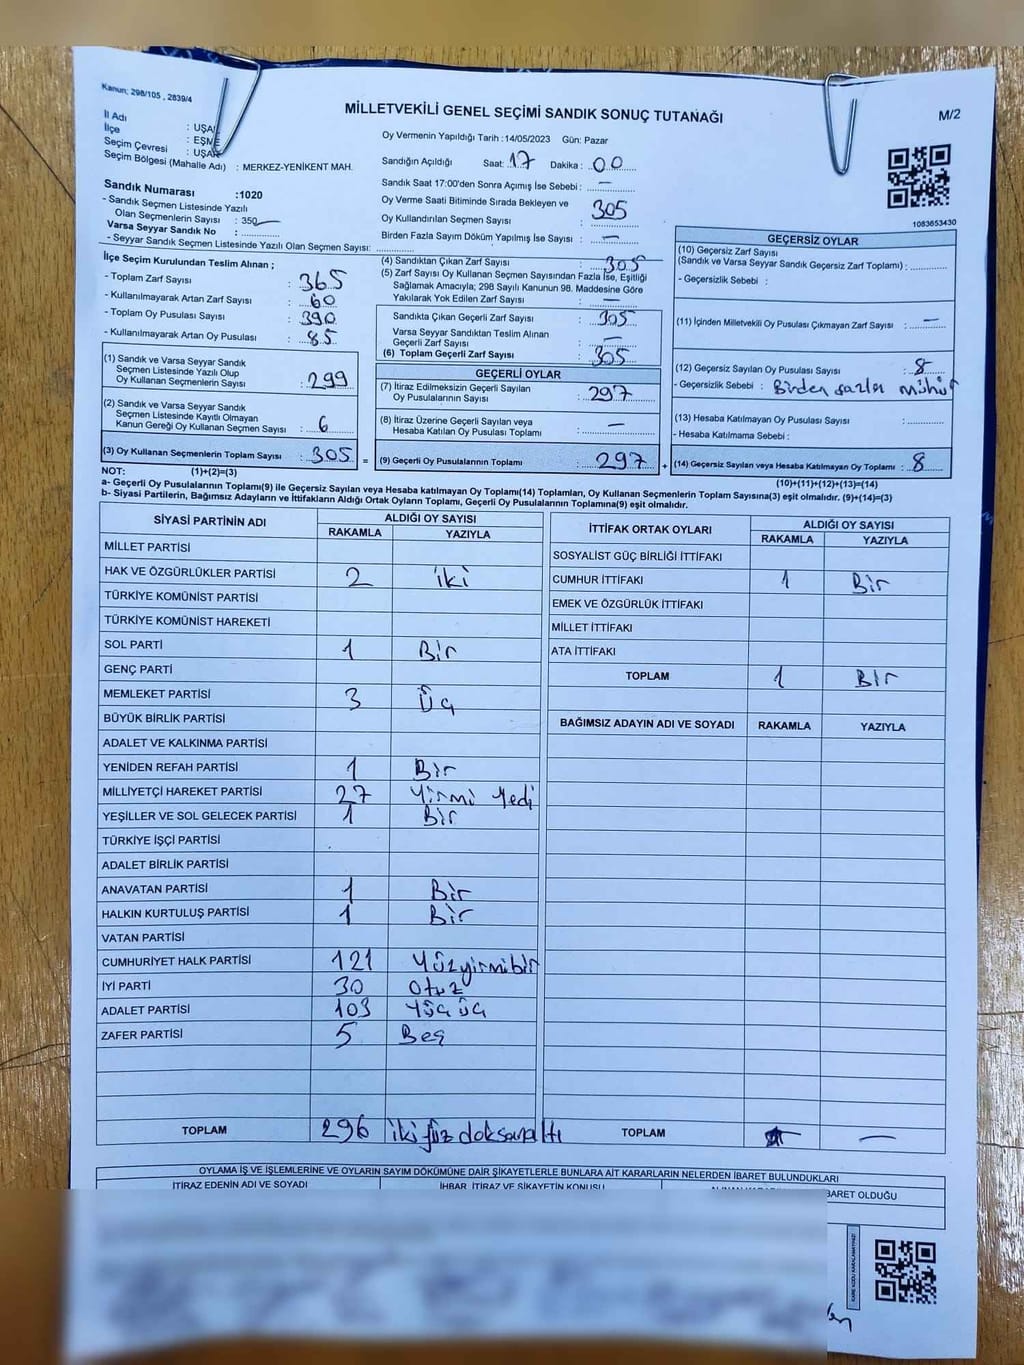 Kanun: 298/105 , 2839/4
MİLLETVEKİLİ GENEL SEÇİMİ SANDIK SONUÇ TUTANAĞI
M/2
İl Adı : UŞAK
İlçe : EŞME
Seçim Çevresi : UŞAK
Seçim Bölgesi (Mahalle Adı) : MERKEZ-YENİKENT MAH.
Sandık Numarası :1020
- Sandık Seçmen Listesinde Yazılı
Olan Seçmenlerin Sayısı : 350
Varsa Seyyar Sandık No :
- Seyyar Sandık Seçmen Listesinde Yazılı Olan Seçmen Sayısı:
Oy Vermenin Yapıldığı Tarih :14/05/2023 Gün: Pazar
Sandığın Açıldığı Saat: 17 Dakika : 00
Sandık Saat 17:00'den Sonra Açımış İse Sebebi : —
Oy Verme Saati Bitiminde Sırada Bekleyen ve
Oy Kullandırılan Seçmen Sayısı : 305
Birden Fazla Sayım Döküm Yapılmış İse Sayısı : —
1083653430
İlçe Seçim Kurulundan Teslim Alınan ;
- Toplam Zarf Sayısı : 365
- Kullanılmayarak Artan Zarf Sayısı : 60
- Toplam Oy Pusulası Sayısı : 390
- Kullanılmayarak Artan Oy Pusulası : 85
(1) Sandık ve Varsa Seyyar Sandık
Seçmen Listesinde Yazılı Olup
Oy Kullanan Seçmenlerin Sayısı : 299
(2) Sandık ve Varsa Seyyar Sandık
Seçmen Listesinde Kayıtlı Olmayan
Kanun Gereği Oy Kullanan Seçmen Sayısı : 6
(3) Oy Kullanan Seçmenlerin Toplam Sayısı : 305 =
(4) Sandıktan Çıkan Zarf Sayısı : 305
(5) Zarf Sayısı Oy Kullanan Seçmen Sayısından Fazla İse, Eşitliği
Sağlamak Amacıyla; 298 Sayılı Kanunun 98. Maddesine Göre
Yakılarak Yok Edilen Zarf Sayısı : —
Sandıkta Çıkan Geçerli Zarf Sayısı : 305
Varsa Seyyar Sandıktan Teslim Alınan
Geçerli Zarf Sayısı : —
(6) Toplam Geçerli Zarf Sayısı : 305
GEÇERLİ OYLAR
(7) İtiraz Edilmeksizin Geçerli Sayılan
Oy Pusulalarının Sayısı : 297
(8) İtiraz Üzerine Geçerli Sayılan veya
Hesaba Katılan Oy Pusulası Toplamı : —
(9) Geçerli Oy Pusulalarının Toplamı : 297 +
GEÇERSİZ OYLAR
(10) Geçersiz Zarf Sayısı
(Sandık ve Varsa Seyyar Sandık Geçersiz Zarf Toplamı) :
- Geçersizlik Sebebi :
(11) İçinden Milletvekili Oy Pusulası Çıkmayan Zarf Sayısı : —
(12) Geçersiz Sayılan Oy Pusulası Sayısı : 8
- Geçersizlik Sebebi : Birden fazla mühür
(13) Hesaba Katılmayan Oy Pusulası Sayısı :
- Hesaba Katılmama Sebebi :
(14) Geçersiz Sayılan veya Hesaba Katılmayan Oy Toplamı : 8
NOT: (1)+(2)=(3) (10)+(11)+(12)+(13)=(14)
a- Geçerli Oy Pusulalarının Toplamı(9) ile Geçersiz Sayılan veya Hesaba katılmayan Oy Toplamı(14) Toplamları, Oy Kullanan Seçmenlerin Toplam Sayısına(3) eşit olmalıdır. (9)+(14)=(3)
b- Siyasi Partilerin, Bağımsız Adayların ve İttifakların Aldığı Ortak Oyların Toplamı, Geçerli Oy Pusulalarının Toplamına(9) eşit olmalıdır.
SİYASİ PARTİNİN ADI ALDIĞI OY SAYISI
RAKAMLA YAZIYLA
MİLLET PARTİSİ
HAK VE ÖZGÜRLÜKLER PARTİSİ 2 iki
TÜRKİYE KOMÜNİST PARTİSİ
TÜRKİYE KOMÜNİST HAREKETİ
SOL PARTİ 1 Bir
GENÇ PARTİ
MEMLEKET PARTİSİ 3 Üç
BÜYÜK BİRLİK PARTİSİ
ADALET VE KALKINMA PARTİSİ
YENİDEN REFAH PARTİSİ 1 Bir
MİLLİYETÇİ HAREKET PARTİSİ 27 Yirmi Yedi
YEŞİLLER VE SOL GELECEK PARTİSİ 1 Bir
TÜRKİYE İŞÇİ PARTİSİ
ADALET BİRLİK PARTİSİ
ANAVATAN PARTİSİ 1 Bir
HALKIN KURTULUŞ PARTİSİ 1 Bir
VATAN PARTİSİ
CUMHURİYET HALK PARTİSİ 121 Yüzyirmibir
İYİ PARTİ 30 Otuz
ADALET PARTİSİ 103 Yüz üç
ZAFER PARTİSİ 5 Beş
TOPLAM 296 iki yüz doksanaltı
İTTİFAK ORTAK OYLARI ALDIĞI OY SAYISI
RAKAMLA YAZIYLA
SOSYALİST GÜÇ BİRLİĞİ İTTİFAKI
CUMHUR İTTİFAKI 1 Bir
EMEK VE ÖZGÜRLÜK İTTİFAKI
MİLLET İTTİFAKI
ATA İTTİFAKI
TOPLAM 1 Bir
BAĞIMSIZ ADAYIN ADI VE SOYADI RAKAMLA YAZIYLA
TOPLAM —
OYLAMA İŞ VE İŞLEMLERİNE VE OYLARIN SAYIM DÖKÜMÜNE DAİR ŞİKAYETLERLE BUNLARA AİT KARARLARIN NELERDEN İBARET BULUNDUKLARI
İTİRAZ EDENİN ADI VE SOYADI İHBAR, İTİRAZ VE ŞİKAYETİN KONUSU BARET OLDUĞU